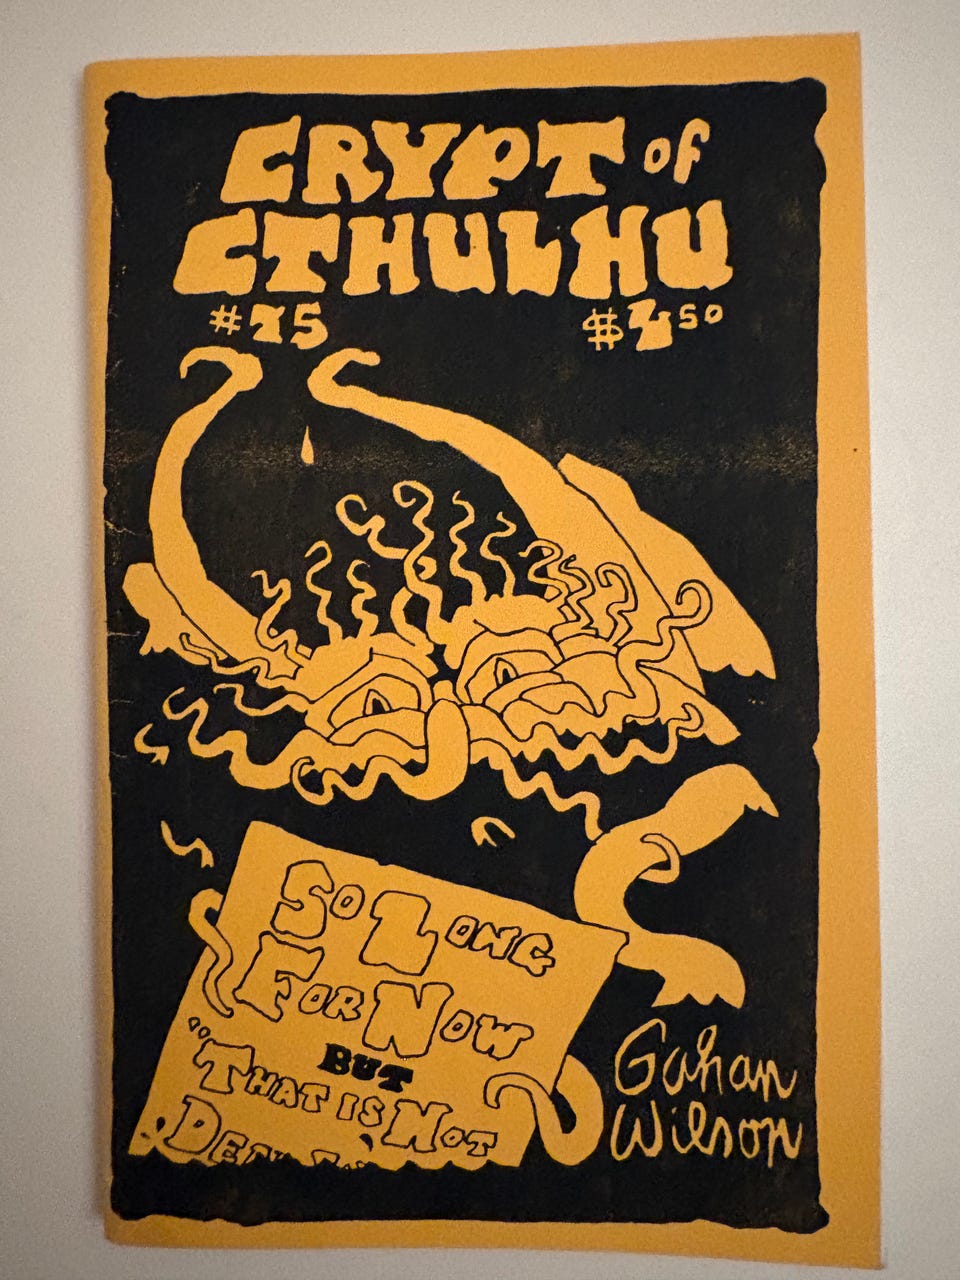 CRYPT OF
CTHULHU
#75 $4.50
SO LONG
FOR NOW
BUT
"THAT IS NOT
Gahan
Wilson